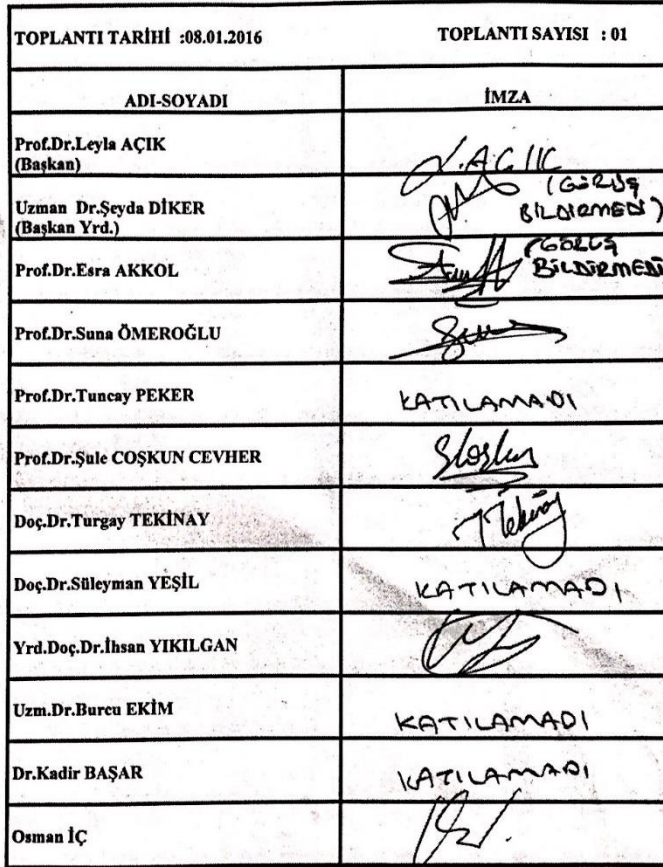 TOPLANTI TARİHİ :08.01.2016 TOPLANTI SAYISI : 01
ADI-SOYADI İMZA
Prof.Dr.Leyla AÇIK
(Başkan)
Uzman Dr.Şeyda DİKER (GÖRÜŞ
(Başkan Yrd.) BİLDİRMEDİ)
Prof.Dr.Esra AKKOL (GÖRÜŞ
BİLDİRMEDİ
Prof.Dr.Suna ÖMEROĞLU
Prof.Dr.Tuncay PEKER KATILAMADI
Prof.Dr.Şule COŞKUN CEVHER
Doç.Dr.Turgay TEKİNAY
Doç.Dr.Süleyman YEŞİL KATILAMADI
Yrd.Doç.Dr.İhsan YIKILGAN
Uzm.Dr.Burcu EKİM KATILAMADI
Dr.Kadir BAŞAR KATILAMADI
Osman İÇ